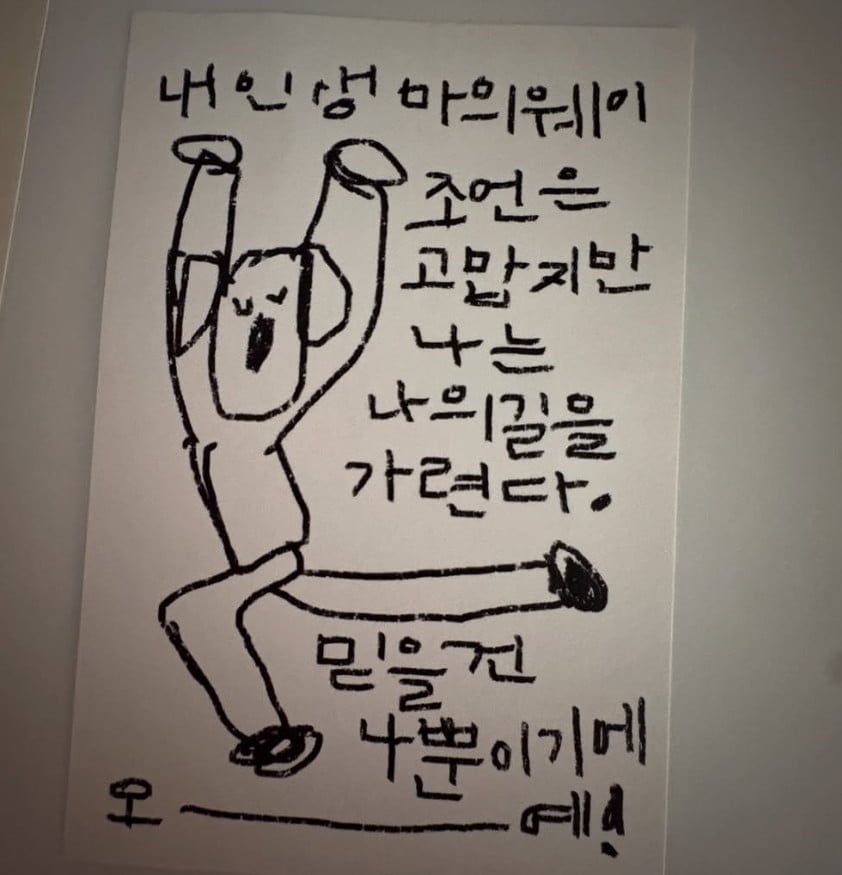 내 인생 마의웨이
조언은
고맙지만
나는
나의길을
가련다.
믿을건
나뿐이기에
오 ———— 예!